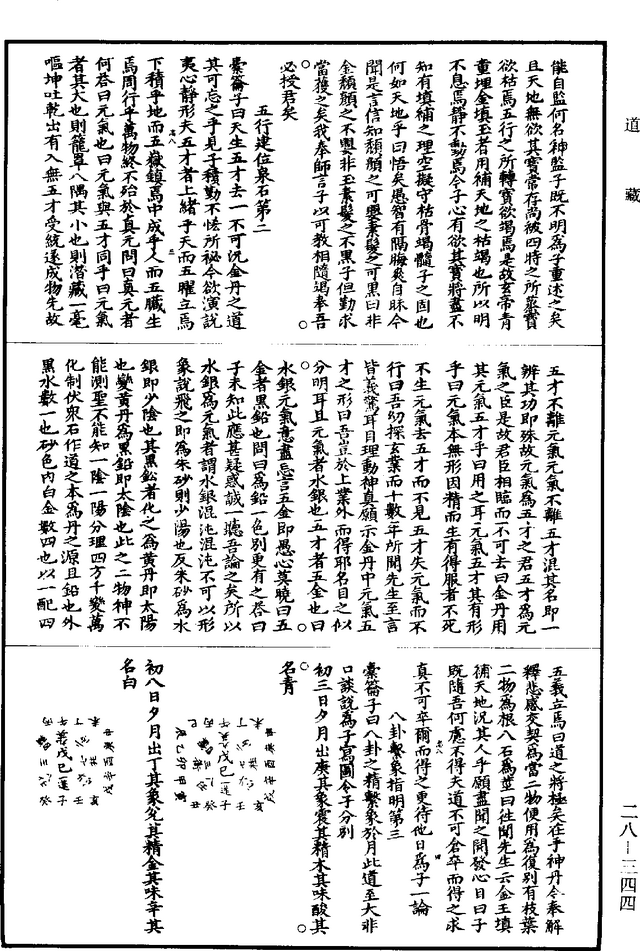 道藏
能自監何名神監子既不明爲子重述之矣
且天地無欲其寶常存尚被四時之所蒸寶
欲枯焉五行之所轉寶欲竭焉是故玄帝青
重埋金填玉者用補天地之枯竭也所以明
不息焉靜不動焉今子心有欲其寶將盡不
知有填補之理空擬守枯骨竭髓子之固也
何如天地乎曰悟矣愚智有隔晦矣自昧今
聞是言信知頹顏之可興素髮之可黑曰非
金頹顏之不興非玉素髮之不黑子但勤求
當獲之矣我奉師言子以可教相隨遏奉吾
必授君矣
五行建位泉石第二
橐籥子曰天生五才去一不可況金丹之道
其可忘之乎見子積勤不恡所祕今欲演說
夷心靜形夫五才者上緒乎天而五曜立焉
下積乎地而五嶽鎮焉中成乎人而五臟生
焉周行乎萬物終不殆於真元問曰真元者
何荅曰元氣也曰元氣與五才同乎曰元氣
者其大也則籠罩八隅其小也則潛藏一毫
嘔坤吐乾出有入無五才受統遂成物先故
五才不離元氣元氣不離五才混其名即一
辨其功即殊故元氣爲五才之君五才爲元
氣之臣是故君臣相臨而不可去曰金丹用
其元氣五才乎曰用之耳元氣五才其有形
乎曰元氣本無形因精而生有得服者不死
不生元氣去五才而不見五才失元氣而不
行曰吾幼探玄業而十數年所聞先生至言
皆義驚耳目理動神真願示金丹中元氣五
才之形曰吾豈於上業外而得耶名目之似
分明耳且元氣者水銀也五才者五金也曰
水銀元氣意盡忘言五金即愚心莫曉曰五
金者黑鉛也問曰爲鉛一色別更有之荅曰
子未知此應甚疑惑誠一聽吾論之矣所以
水銀爲元氣者謂水銀混沌混沌不可以形
象說飛之即爲朱砂則少陽也反朱砂爲水
銀即少陰也其黑鈆者化之爲黃丹即太陽
也變黃丹爲黑鉛即太陰也此之二物神不
能測聖不能知一陰一陽分理四方千變萬
化制伏衆石作道之本爲丹之源且鉛也外
黑水數一也砂色内白金數四也以一配四
五義立焉曰道之將極矣在乎神丹今奉解
釋悲感交契爲當二物便用爲復別有枝葉
二物爲根八石爲莖曰往聞先生云金玉填
補天地況其人乎願盡聞之開發心目曰子
既隨吾何慮不得夫道不可倉卒而得之求
真不可卒爾而得之更待他日爲子一論
八卦繫象指明第三
橐籥子曰八卦之精繫象於月此道至大非
口談說爲子寫圖令子分別
初三日夕月出庚其象震其精木其味酸其
名青
初八日夕月出丁其象兌其精金其味辛其
名白
二八－三四四